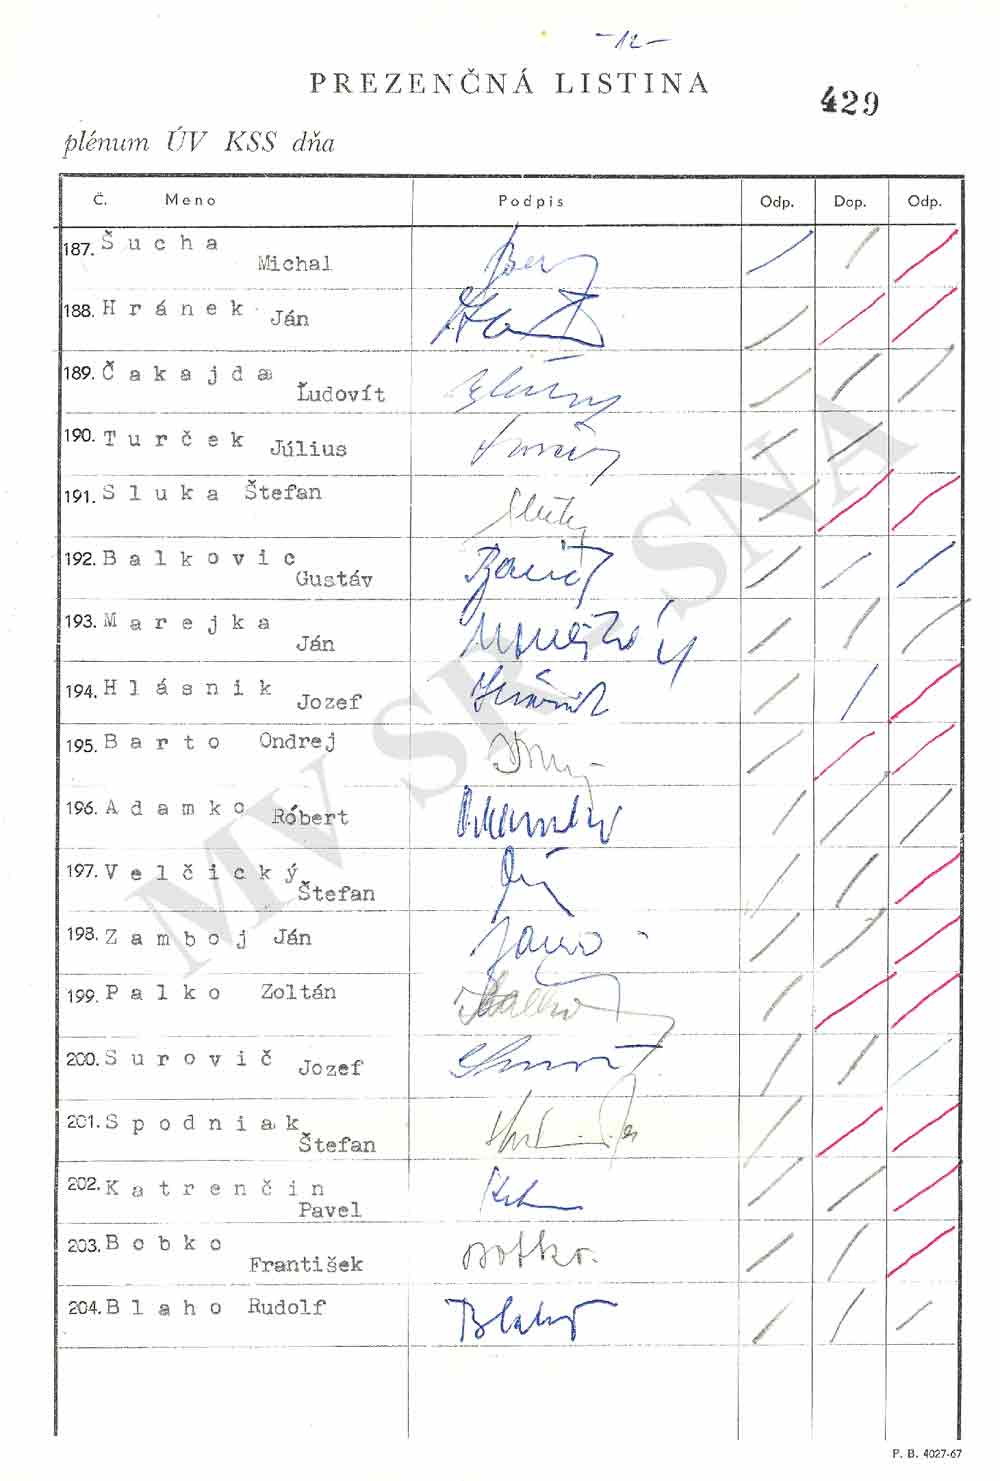 -12-
PREZENČNÁ LISTINA
429
plénum ÚV KSS dňa
Č. Meno Podpis Odp. Dop. Odp.
187. Šucha
Michal
188. Hránek Ján
189. Čakajda
Ľudovít
190. Turček Július
191. Sluka Štefan
192. Balkovic
Gustáv
193. Marejka
Ján
194. Hlásnik
Jozef
195. Barto Ondrej
196. Adamko Róbert
197. Velčický
Štefan
198. Zamboj Ján
199. Palko Zoltán
200. Surovič Jozef
201. Spodniak
Štefan
202. Katrenčin
Pavel
203. Bobko
František
204. Blaho Rudolf
MV SR - SNA
P. B. 4027-67